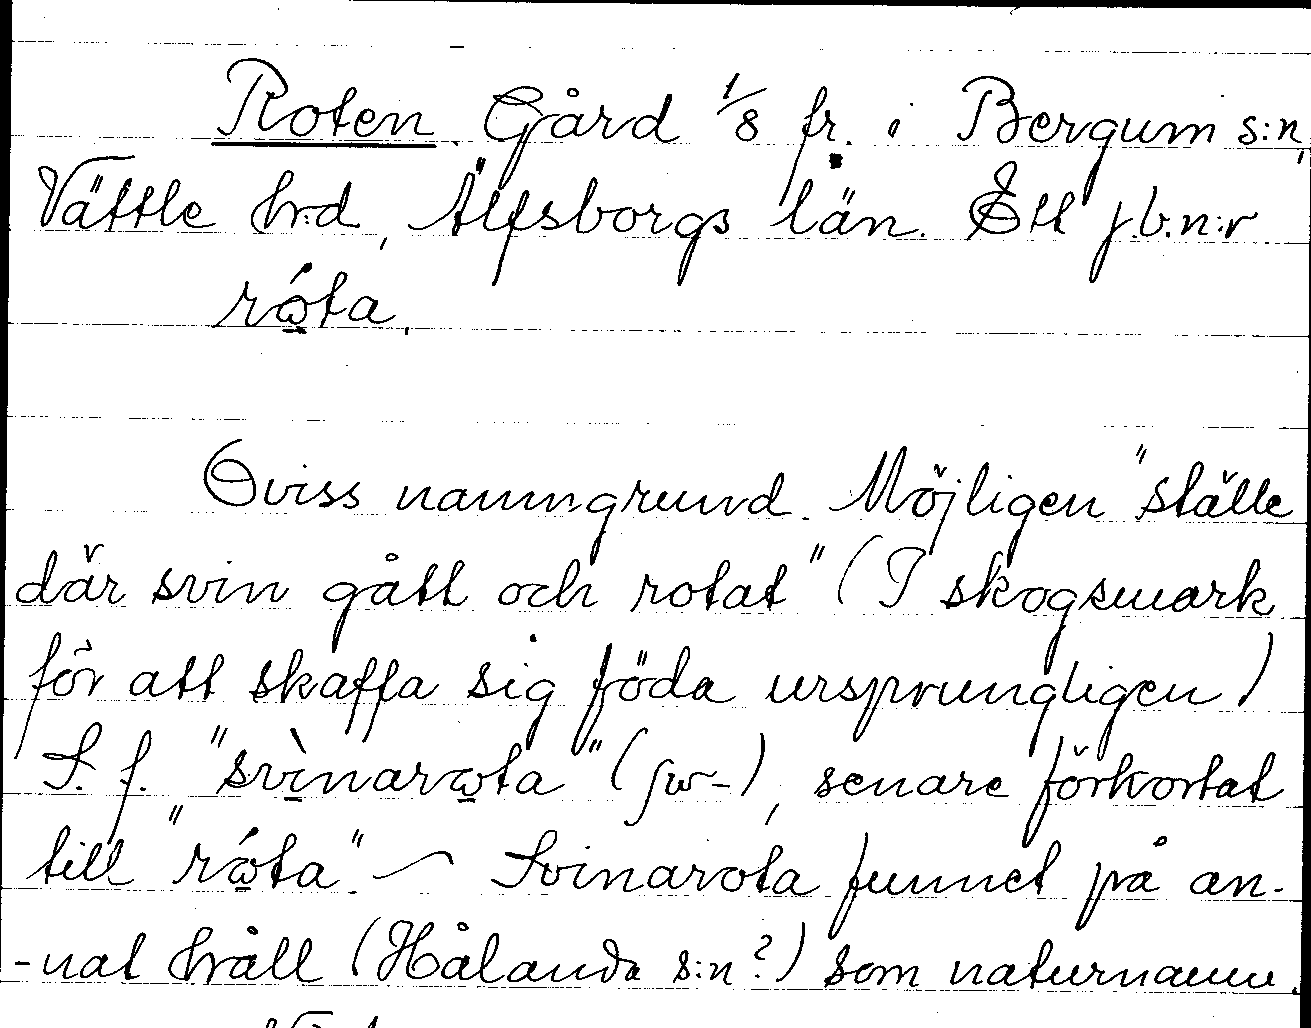 Roten. Gård 1/8 fr. i Bergum s:n,
Vättle h:d, Älfsborgs län. Ett j.b.n:r
rώta.
Oviss namngrund. Möjligen "ställe
där svin gått och rotat" (I skogsmark
för att skaffa sig föda ursprungligen)
S. f. "svìnarωta" (sw-), senare förkortat
till "rώta". — Svinarota funnet på an-
-nat håll (Hålanda s:n?) som naturnamn.